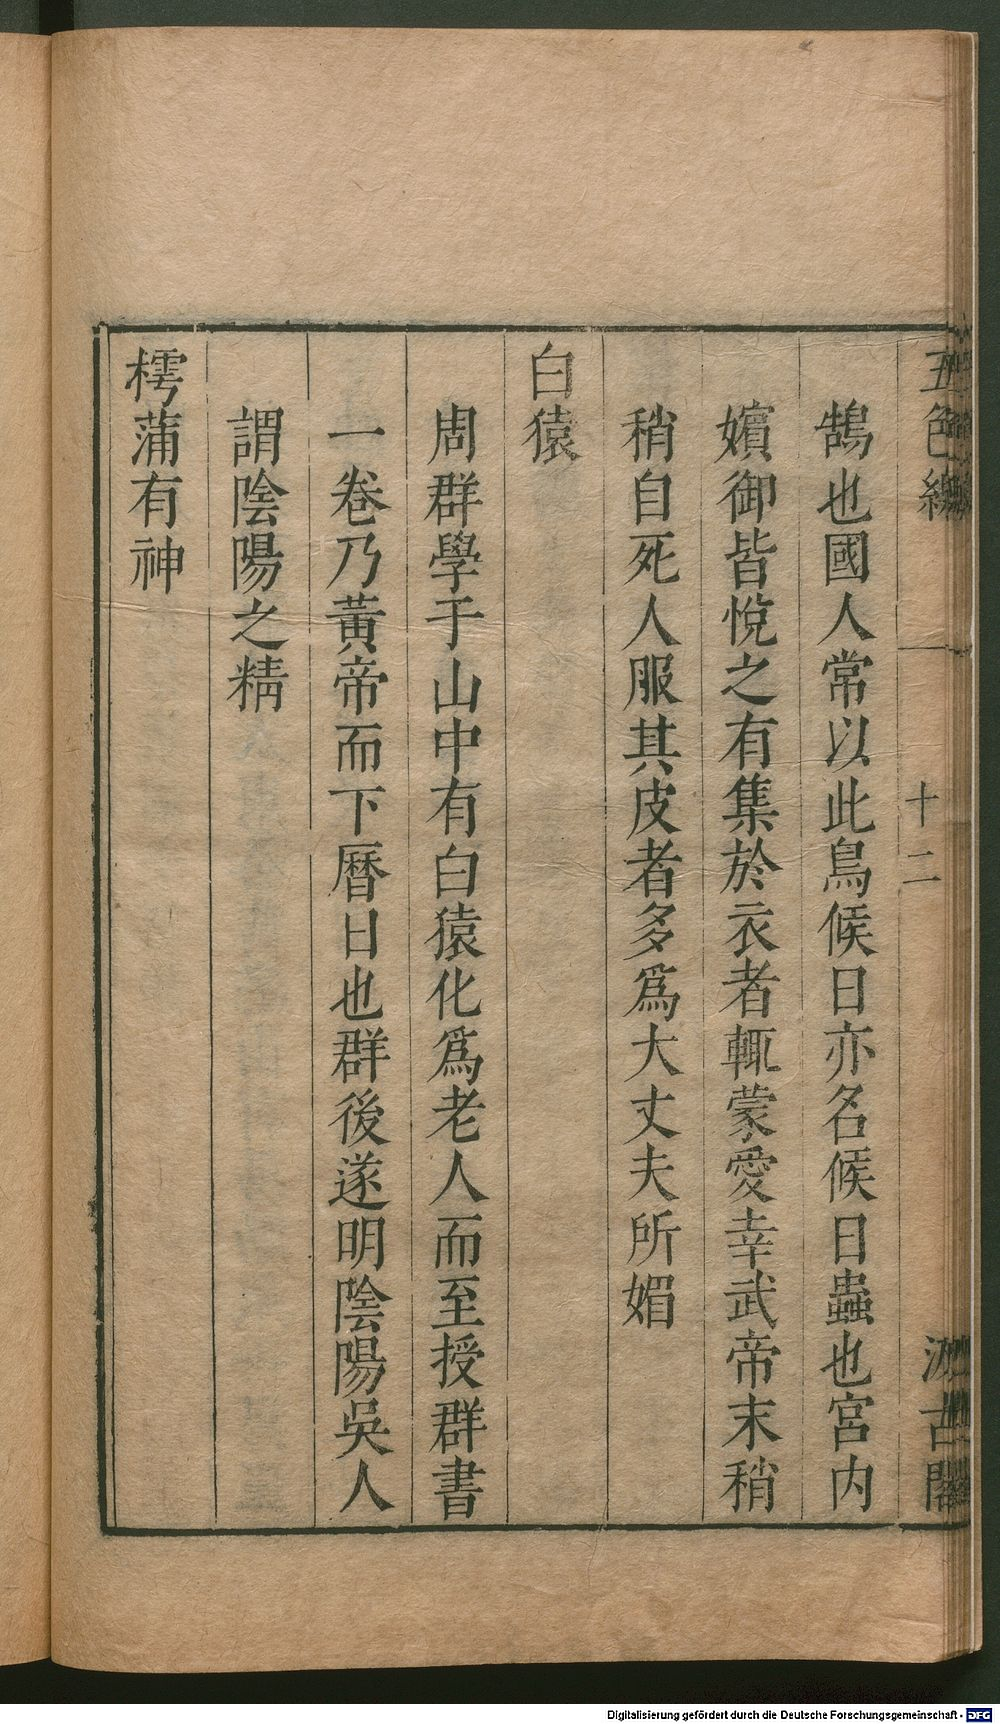 五色線
十二
汲古閣
鵠也國人常以此鳥候日亦名候日蟲也宮内
嬪御皆悅之有集於衣者輒蒙愛幸武帝末稍
稍自死人服其皮者多爲大丈夫所媚
白猿
周群學于山中有白猿化爲老人而至授群書
一卷乃黃帝而下曆日也群後遂明陰陽吳人
謂陰陽之精
樗蒲有神
Digitalisierung gefördert durch die Deutsche Forschungsgemeinschaft - DFG